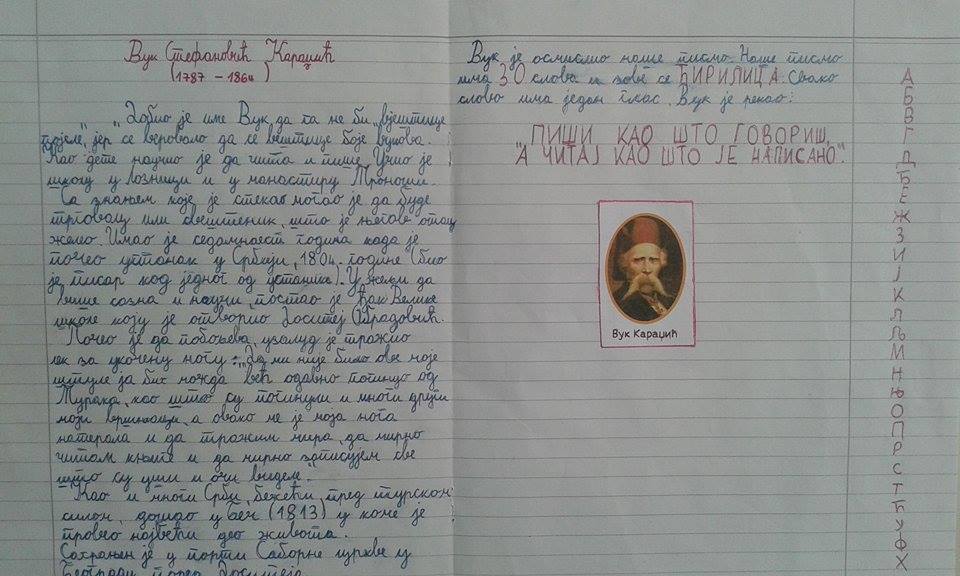 Вук Стефановић Караџић
(1787 – 1864)
Добио је име Вук, да га не би „вјештице
појеле", јер се веровало да се вештице боје вукова.
Као дете научио је да чита и пише. Учио је
школу у Лозници и у манастиру Троноши.
Са знањем које је стекао могао је да буде
трговац или свештеник, што је његов отац
желео. Имао је седамнаест година када је
почео устанак у Србији, 1804. године (био
је писар код једног од устаника). У жељи да
више сазна и научи, постао је ђак Велике
школе коју је отворио Доситеј Обрадовић.
Почео је да побољева, узалуд је тражио
лек за укочену ногу: „Да ми није било ове моје
штуле ја бих можда већ одавно погинуо од
Турака, као што су погинули и многи други
моји вршњаци, а овако ме је моја нога
натерала и да тражим мира, да мирно
читам књиге и да мирно записујем све
што су уши и очи виделе."
Као и многи Срби, бежећи пред турском
силом, дошао у Беч (1813) у коме је
провео највећи део живота.
Сахрањен је у порти Саборне цркве у
Београду поред Доситеја
Вук је осмислио наше писмо. Наше писмо
има 30 слова и зове се ЋИРИЛИЦА. Свако
слово има један глас. Вук је рекао:
„ПИШИ КАО ШТО ГОВОРИШ,
А ЧИТАЈ КАО ШТО ЈЕ НАПИСАНО".
Вук Караџић
А
Б
В
Г
Д
Ђ
Е
Ж
З
И
Ј
К
Л
Љ
М
Н
Њ
О
П
Р
С
Т
Ћ
У
Ф
Х